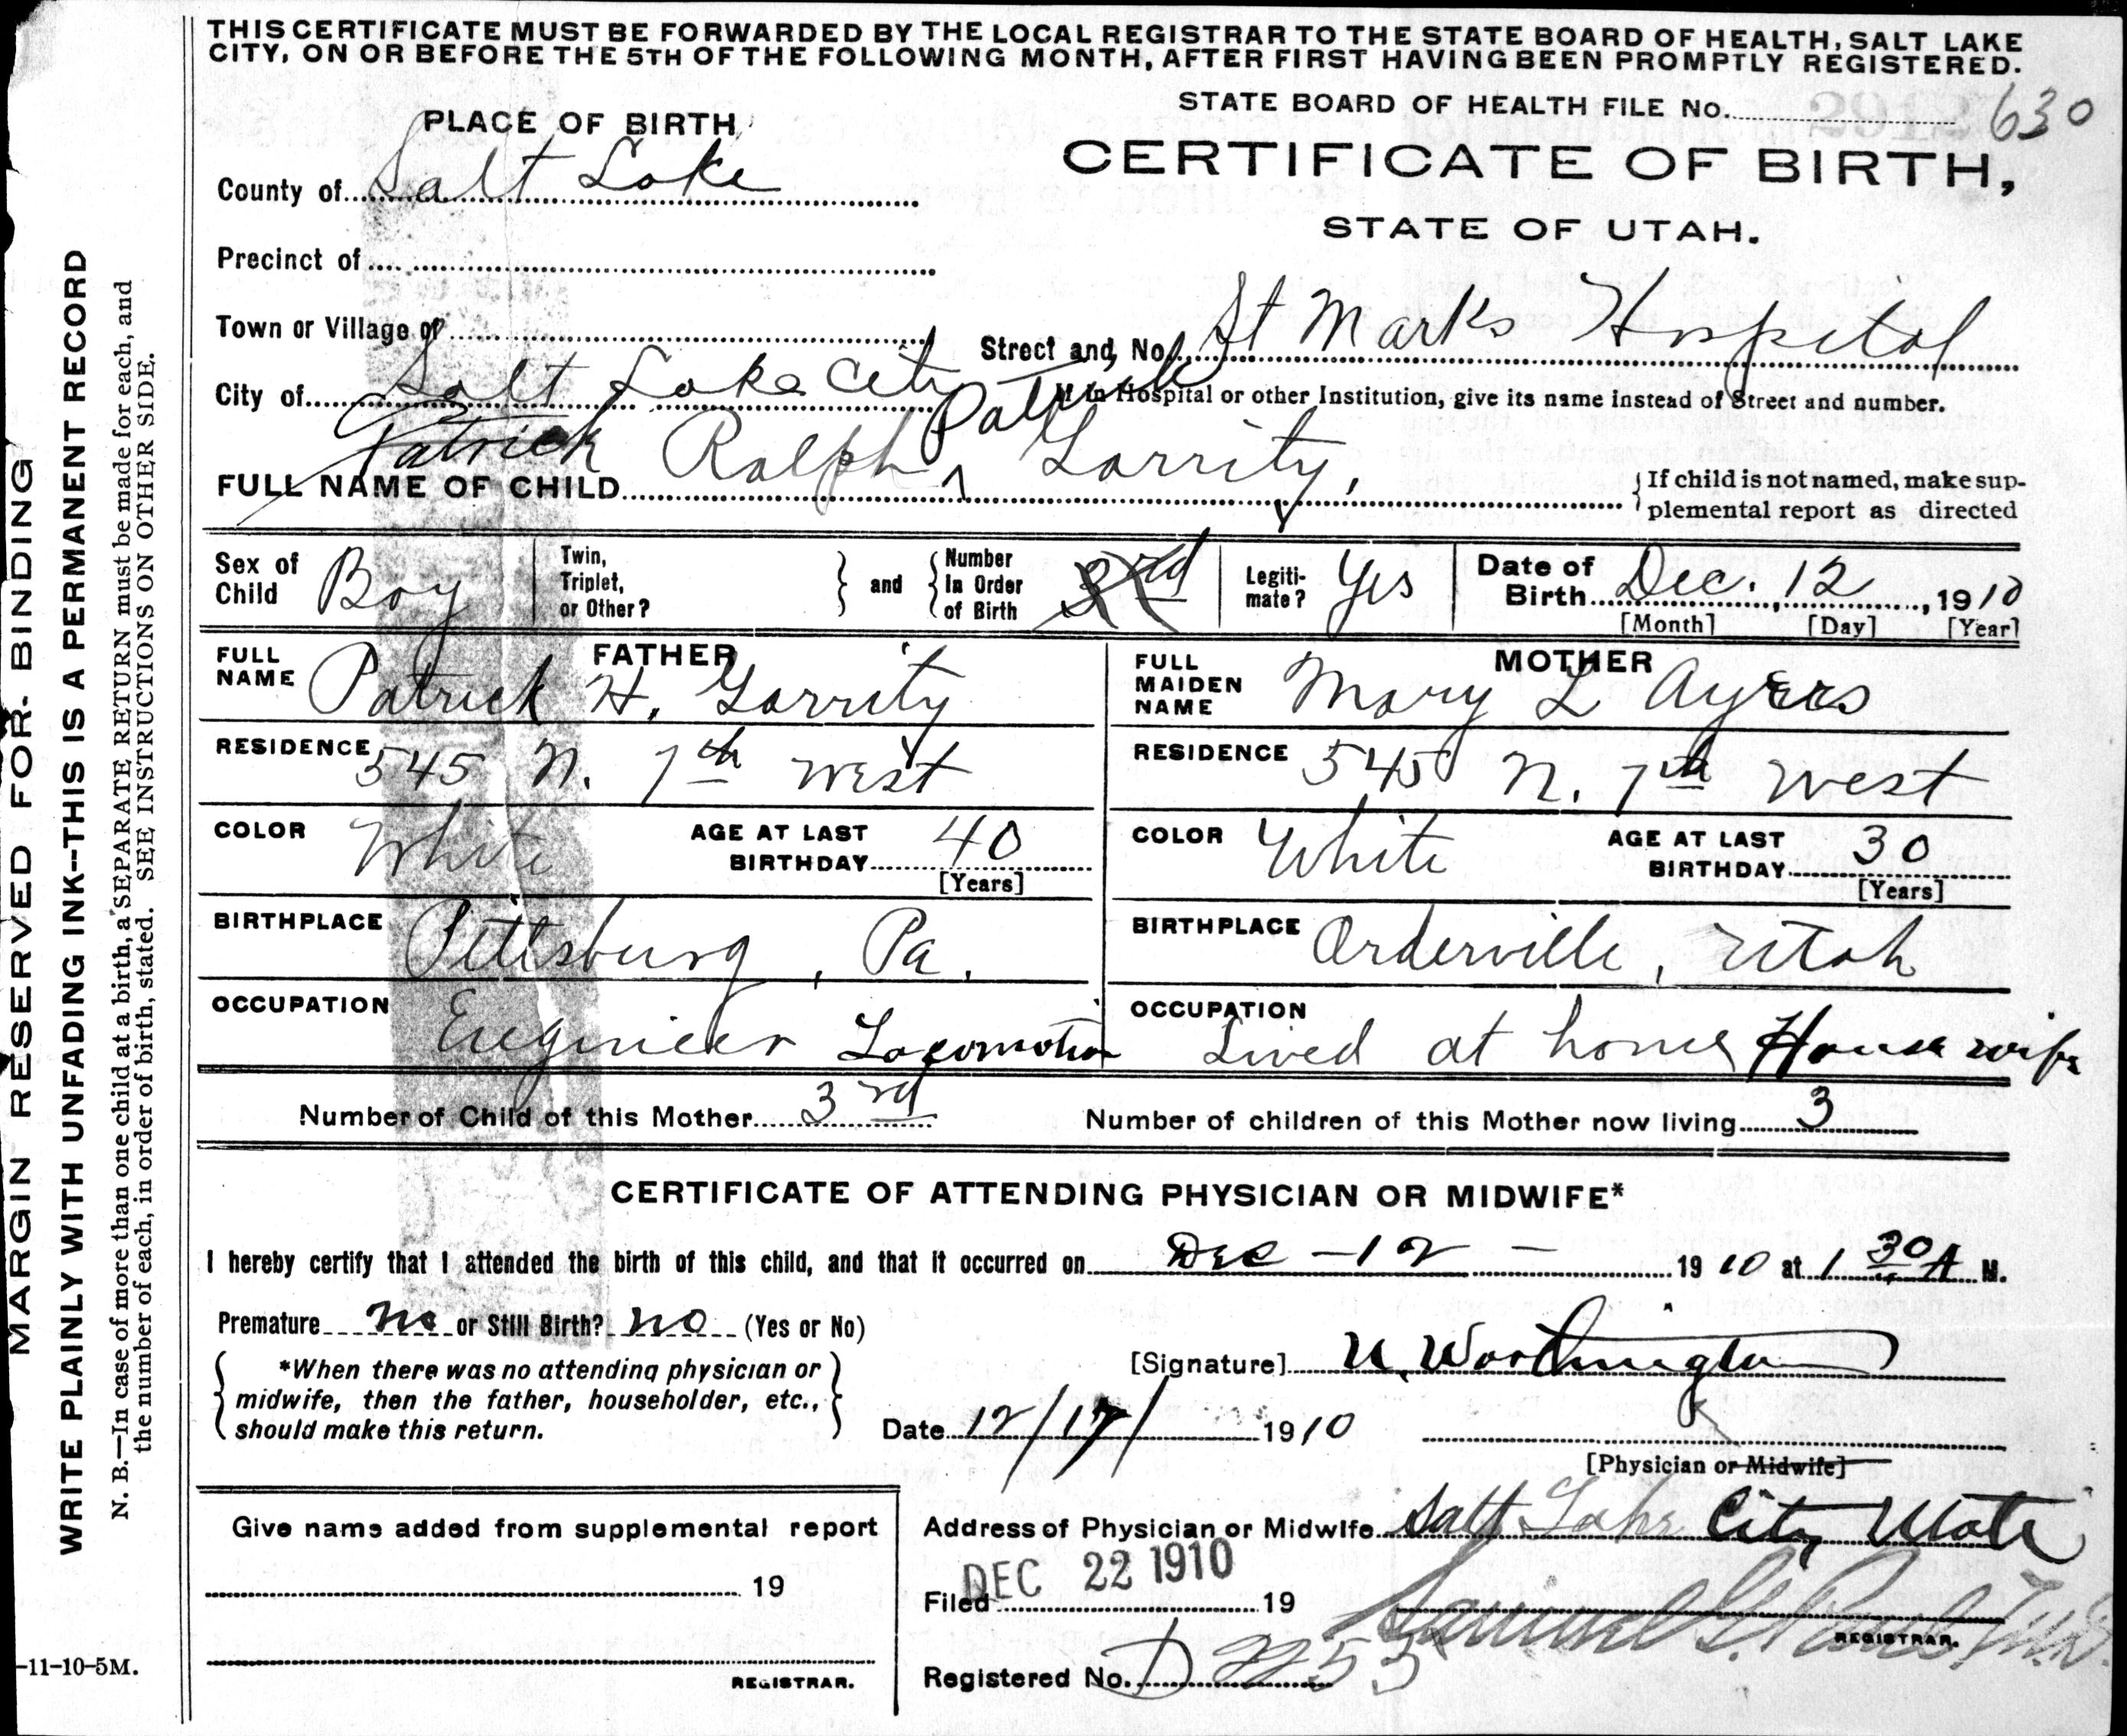 THIS CERTIFICATE MUST BE FORWARDED BY THE LOCAL REGISTRAR TO THE STATE BOARD OF HEALTH, SALT LAKE
CITY, ON OR BEFORE THE 5TH OF THE FOLLOWING MONTH, AFTER FIRST HAVING BEEN PROMPTLY REGISTERED.
STATE BOARD OF HEALTH FILE No. 630
PLACE OF BIRTH
CERTIFICATE OF BIRTH,
STATE OF UTAH.
County of Salt Lake
Precinct of
Town or Village of
Street and No. St Marks Hospital
City of Salt Lake City
If in Hospital or other Institution, give its name instead of Street and number.
Patrick
Patrick Ralph Garrity,
FULL NAME OF CHILD
If child is not named, make sup-
plemental report as directed
Sex of Child Boy
Twin, Triplet, or Other?
and
Number in Order of Birth 3rd
Legiti-mate? Yes
Date of Birth Dec. 12, 1910
[Month] [Day] [Year]
FATHER
FULL NAME Patrick H. Garrity
RESIDENCE 545 N. 7th West
COLOR White
AGE AT LAST BIRTHDAY 40
[Years]
BIRTHPLACE Pittsburg, Pa.
OCCUPATION Engineer Locomotive
MOTHER
FULL MAIDEN NAME Mary L Ayers
RESIDENCE 545 N. 7th West
COLOR White
AGE AT LAST BIRTHDAY 30
[Years]
BIRTHPLACE Orderville, Utah
OCCUPATION Lived at home Housewife
Number of Child of this Mother 3rd
Number of children of this Mother now living 3
CERTIFICATE OF ATTENDING PHYSICIAN OR MIDWIFE*
I hereby certify that I attended the birth of this child, and that it occurred on Dec - 12 - 1910 at 1 30 A M.
Premature no or Still Birth? no (Yes or No)
*When there was no attending physician or
midwife, then the father, householder, etc.,
should make this return.
[Signature] U. Worthington
Date 12/17/ 1910
[Physician or Midwife]
Give name added from supplemental report
19
REGISTRAR.
Address of Physician or Midwife Salt Lake City Utah
DEC 22 1910
Filed 19
Samuel G. Paul, M.D.
REGISTRAR.
Registered No. D 2253
MARGIN RESERVED FOR BINDING
WRITE PLAINLY WITH UNFADING INK--THIS IS A PERMANENT RECORD
N. B.—In case of more than one child at a birth, a SEPARATE RETURN must be made for each, and
the number of each, in order of birth, stated. SEE INSTRUCTIONS ON OTHER SIDE.
-11-10-5M.